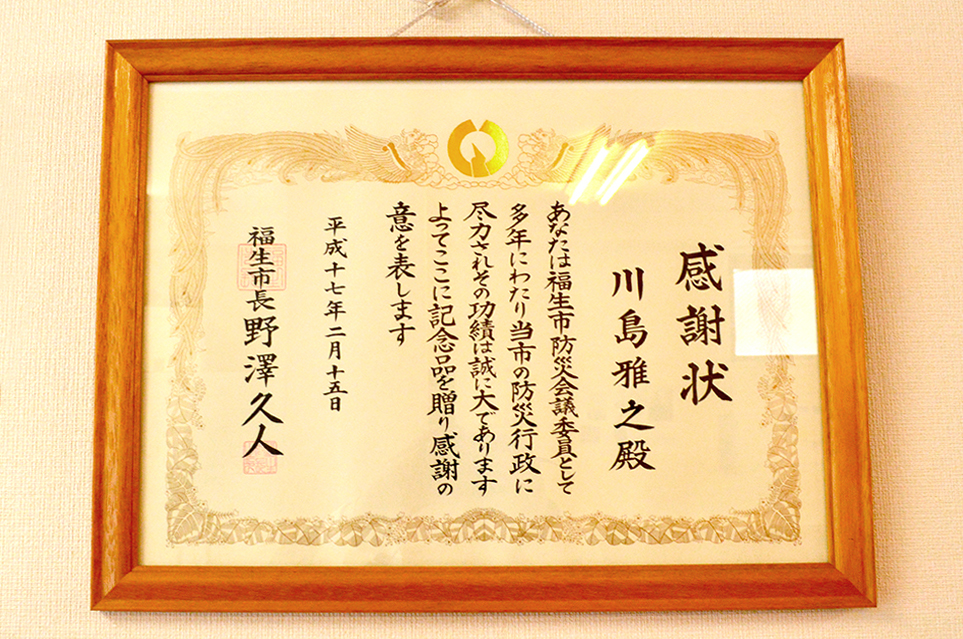 感謝状
川島雅之殿
あなたは福生市防災会議委員として
多年にわたり当市の防災行政に
尽力されその功績は誠に大であります
よってここに記念品を贈り感謝の
意を表します
平成十七年二月十五日
福生市長野澤久人